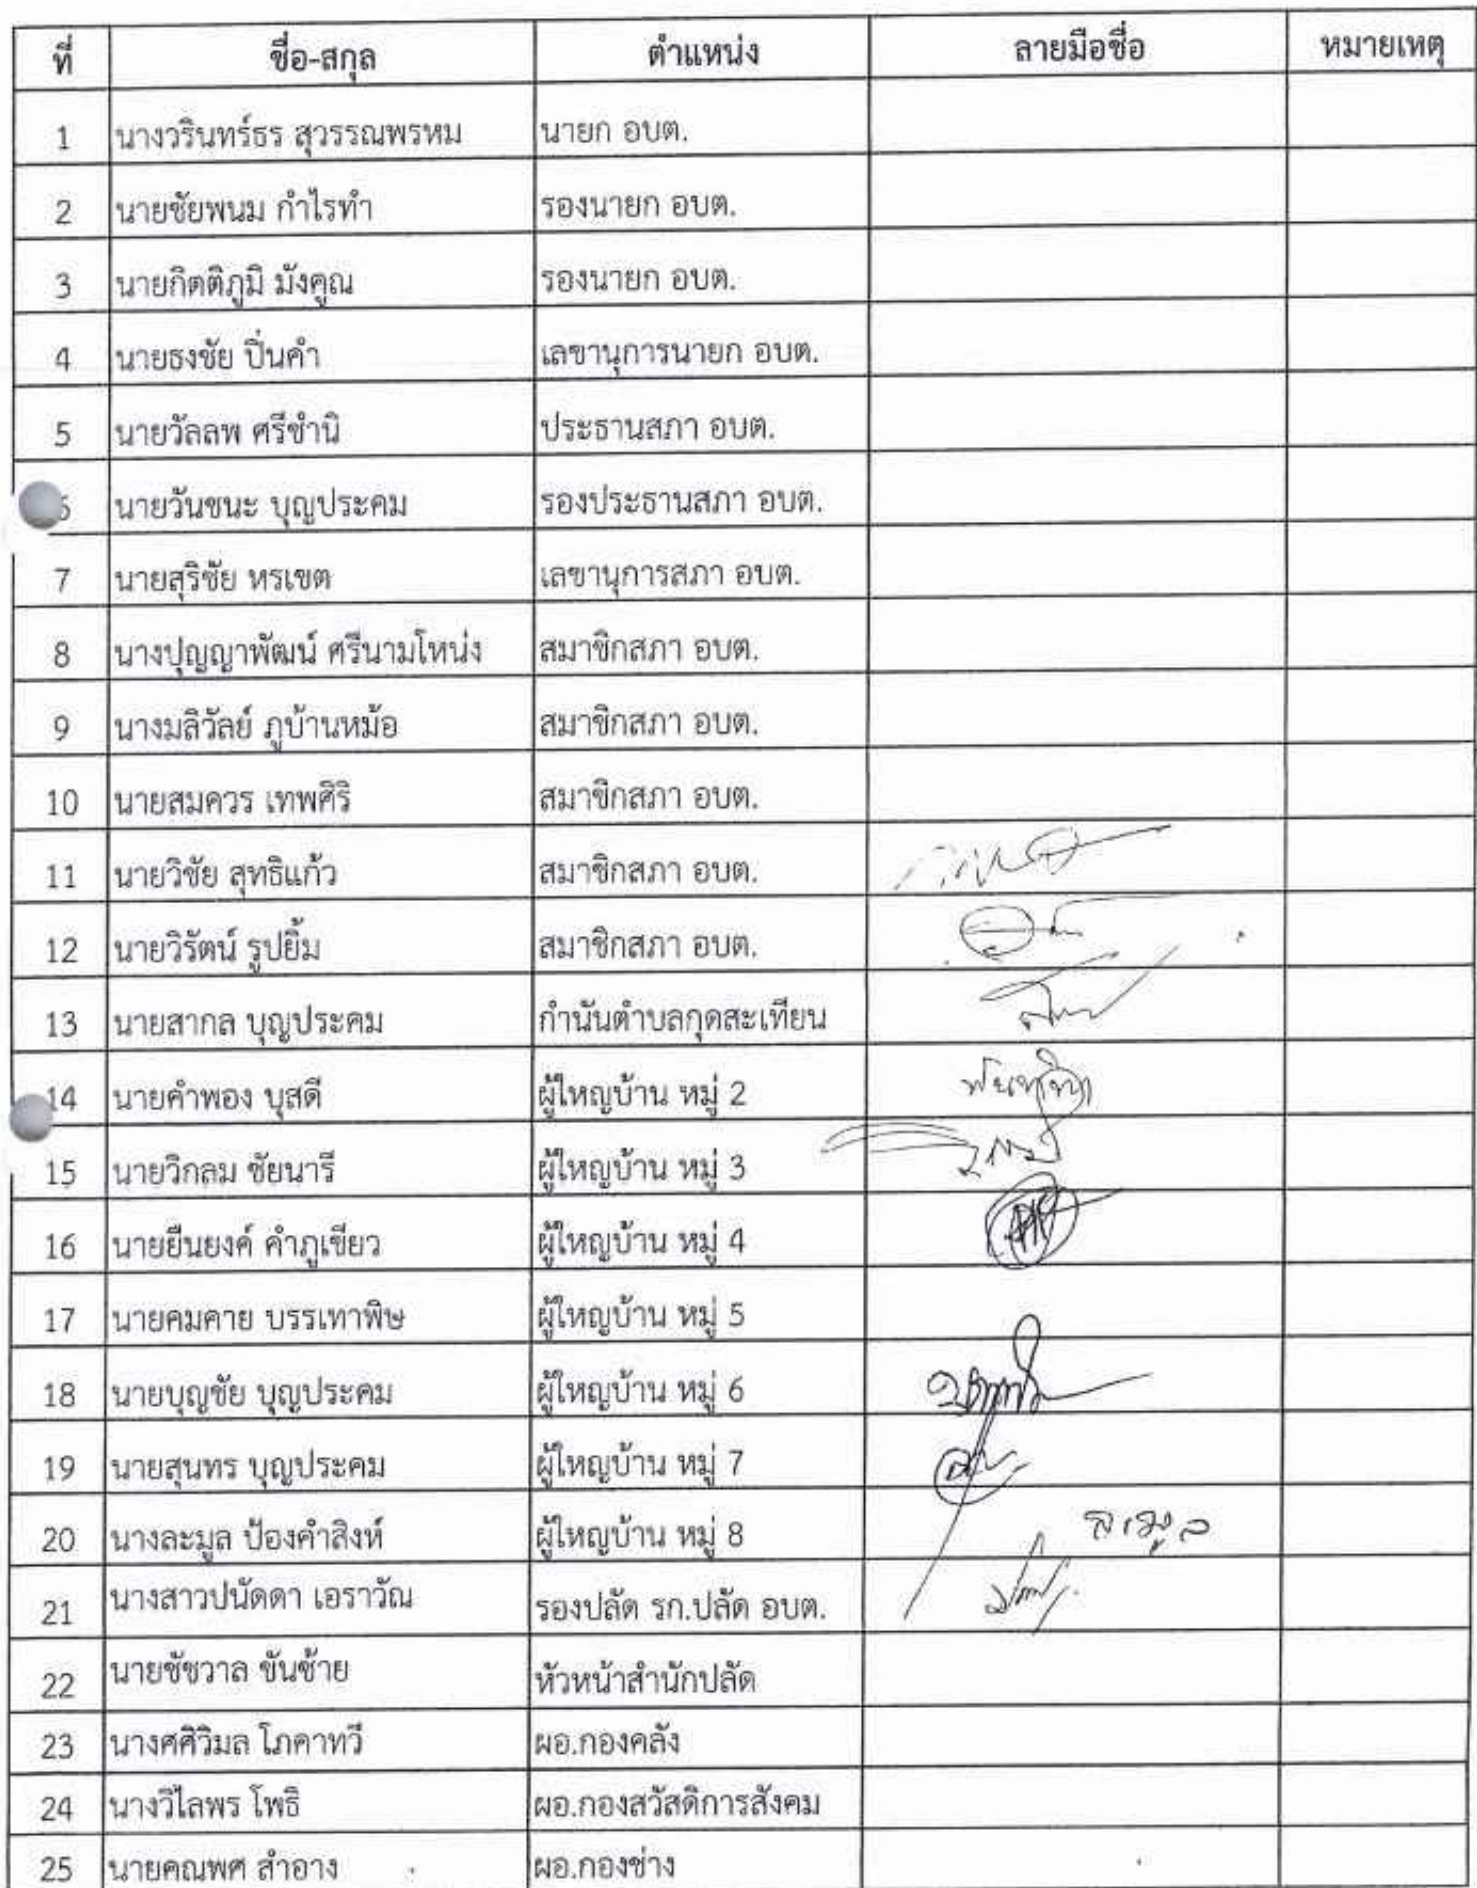 ที่ ชื่อ-สกุล ตำแหน่ง ลายมือชื่อ หมายเหตุ
1 นางวรินทร์ธร สุวรรณพรหม นายก อบต.
2 นายชัยพนม กำไรทำ รองนายก อบต.
3 นายกิตติภูมิ มังคูณ รองนายก อบต.
4 นายธงชัย ปิ่นคำ เลขานุการนายก อบต.
5 นายวัลลพ ศรีชำนิ ประธานสภา อบต.
6 นายวันชนะ บุญประคม รองประธานสภา อบต.
7 นายสุริชัย หรเขต เลขานุการสภา อบต.
8 นางปุญญาพัฒน์ ศรีนามโหน่ง สมาชิกสภา อบต.
9 นางมลิวัลย์ ภูบ้านหม้อ สมาชิกสภา อบต.
10 นายสมควร เทพศิริ สมาชิกสภา อบต.
11 นายวิชัย สุทธิแก้ว สมาชิกสภา อบต.
12 นายวิรัตน์ รูปยิ้ม สมาชิกสภา อบต.
13 นายสากล บุญประคม กำนันตำบลกุดสะเทียน
14 นายคำพอง บุสดี ผู้ใหญ่บ้าน หมู่ 2
15 นายวิกลม ชัยนารี ผู้ใหญ่บ้าน หมู่ 3
16 นายยืนยงค์ คำภูเขียว ผู้ใหญ่บ้าน หมู่ 4
17 นายคมคาย บรรเทาพิษ ผู้ใหญ่บ้าน หมู่ 5
18 นายบุญชัย บุญประคม ผู้ใหญ่บ้าน หมู่ 6
19 นายสุนทร บุญประคม ผู้ใหญ่บ้าน หมู่ 7
20 นางละมูล ป้องคำสิงห์ ผู้ใหญ่บ้าน หมู่ 8 ละมูล
21 นางสาวปนัดดา เอราวัณ รองปลัด รก.ปลัด อบต.
22 นายชัชวาล ขันซ้าย หัวหน้าสำนักปลัด
23 นางศศิวิมล โภคาทวี ผอ.กองคลัง
24 นางวิไลพร โพธิ ผอ.กองสวัสดิการสังคม
25 นายคณพศ สำอาง ผอ.กองช่าง